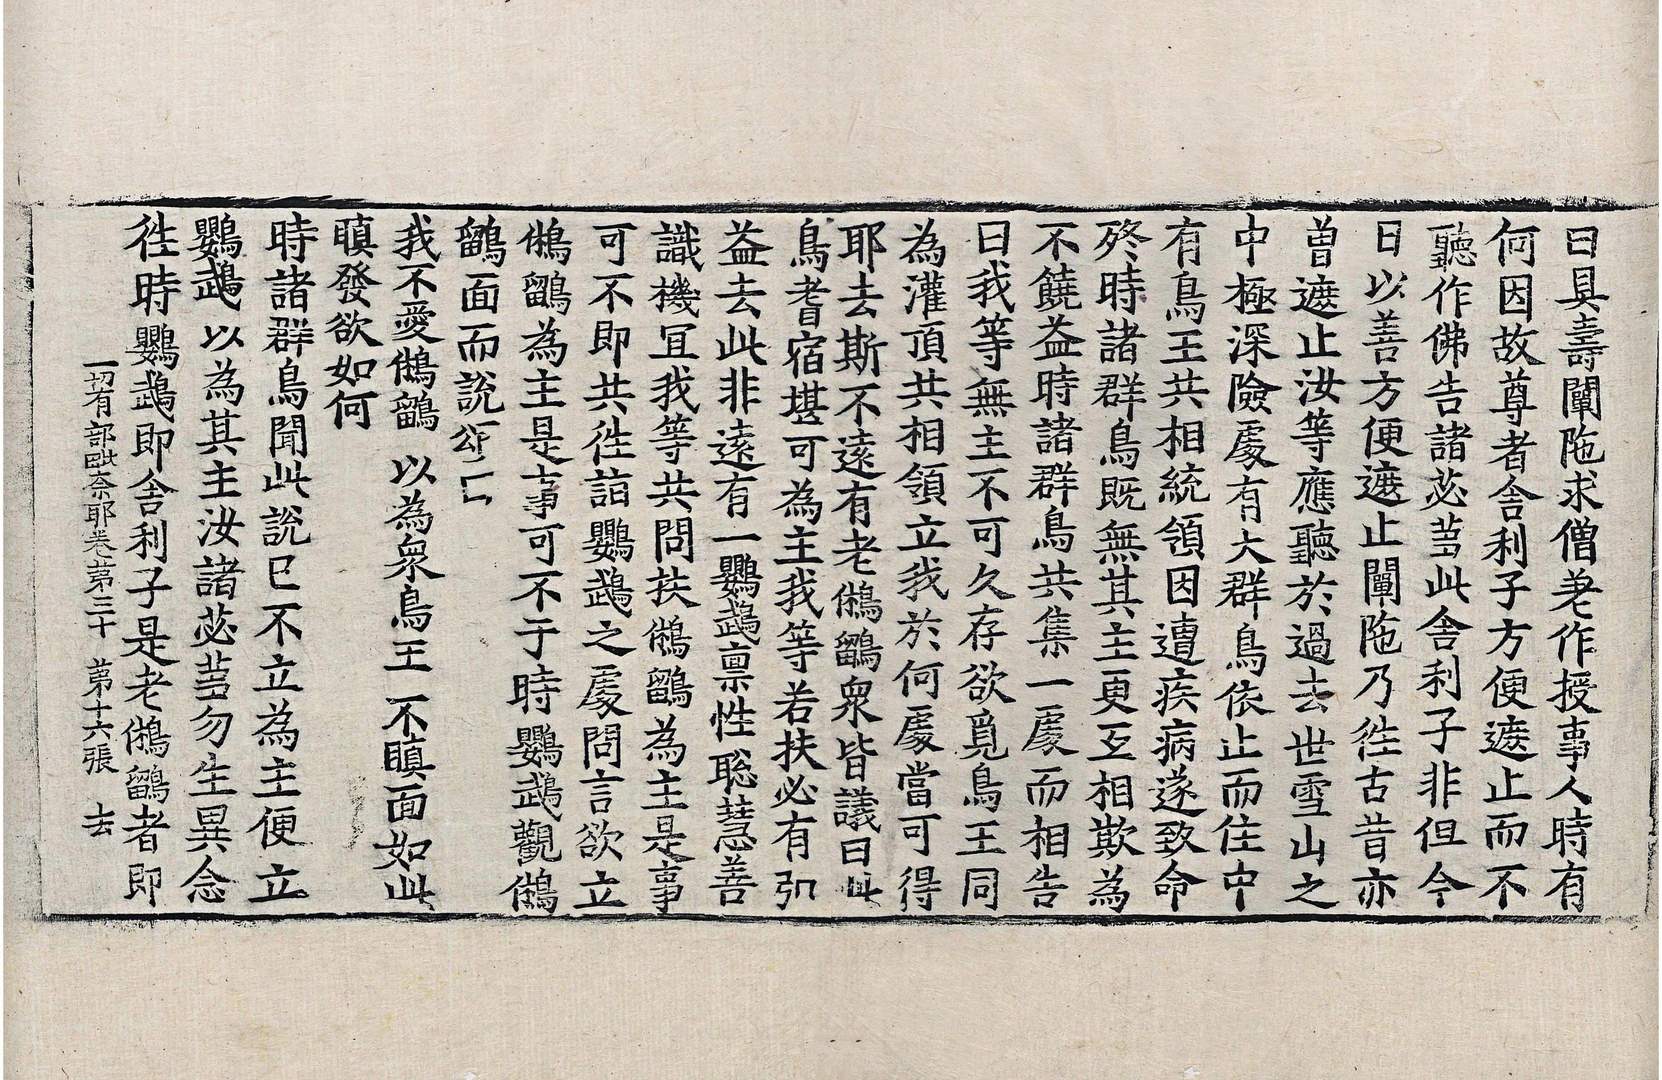 曰具壽闡陁求僧差作授事人時有
何因故尊者舍利子方便遮止而不
聽作佛告諸苾芻此舍利子非但今
日以善方便遮止闡陁乃徃古昔亦
曾遮止汝等應聽於過去世雪山之
中極深險處有大群鳥依止而住中
有鳥王共相統領因遭疾病遂致命
終時諸群鳥旣無其主更互相欺為
不饒益時諸群鳥共集一處而相告
曰我等無主不可久存欲覓鳥王同
為灌頂共相領立我於何處當可得
耶去斯不遠有老鵂鶹衆皆議曰此
鳥耆宿堪可為主我等若扶必有弘
益去此非遠有一鸚鵡禀性聡慧善
識機冝我等共問扶鵂鶹為主是事
可不即共徃詣鸚鵡之處問言欲立
鵂鶹為主是事可不于時鸚鵡觀鵂
鶹面而說頌曰
我不愛鵂鶹 以為衆鳥王 不瞋面如此
瞋發欲如何
時諸群鳥聞此說已不立為主便立
鸚鵡以為其主汝諸苾芻勿生異念
徃時鸚鵡即舍利子是老鵂鶹者即
一切有部毗奈耶卷第三十 第十六張 去